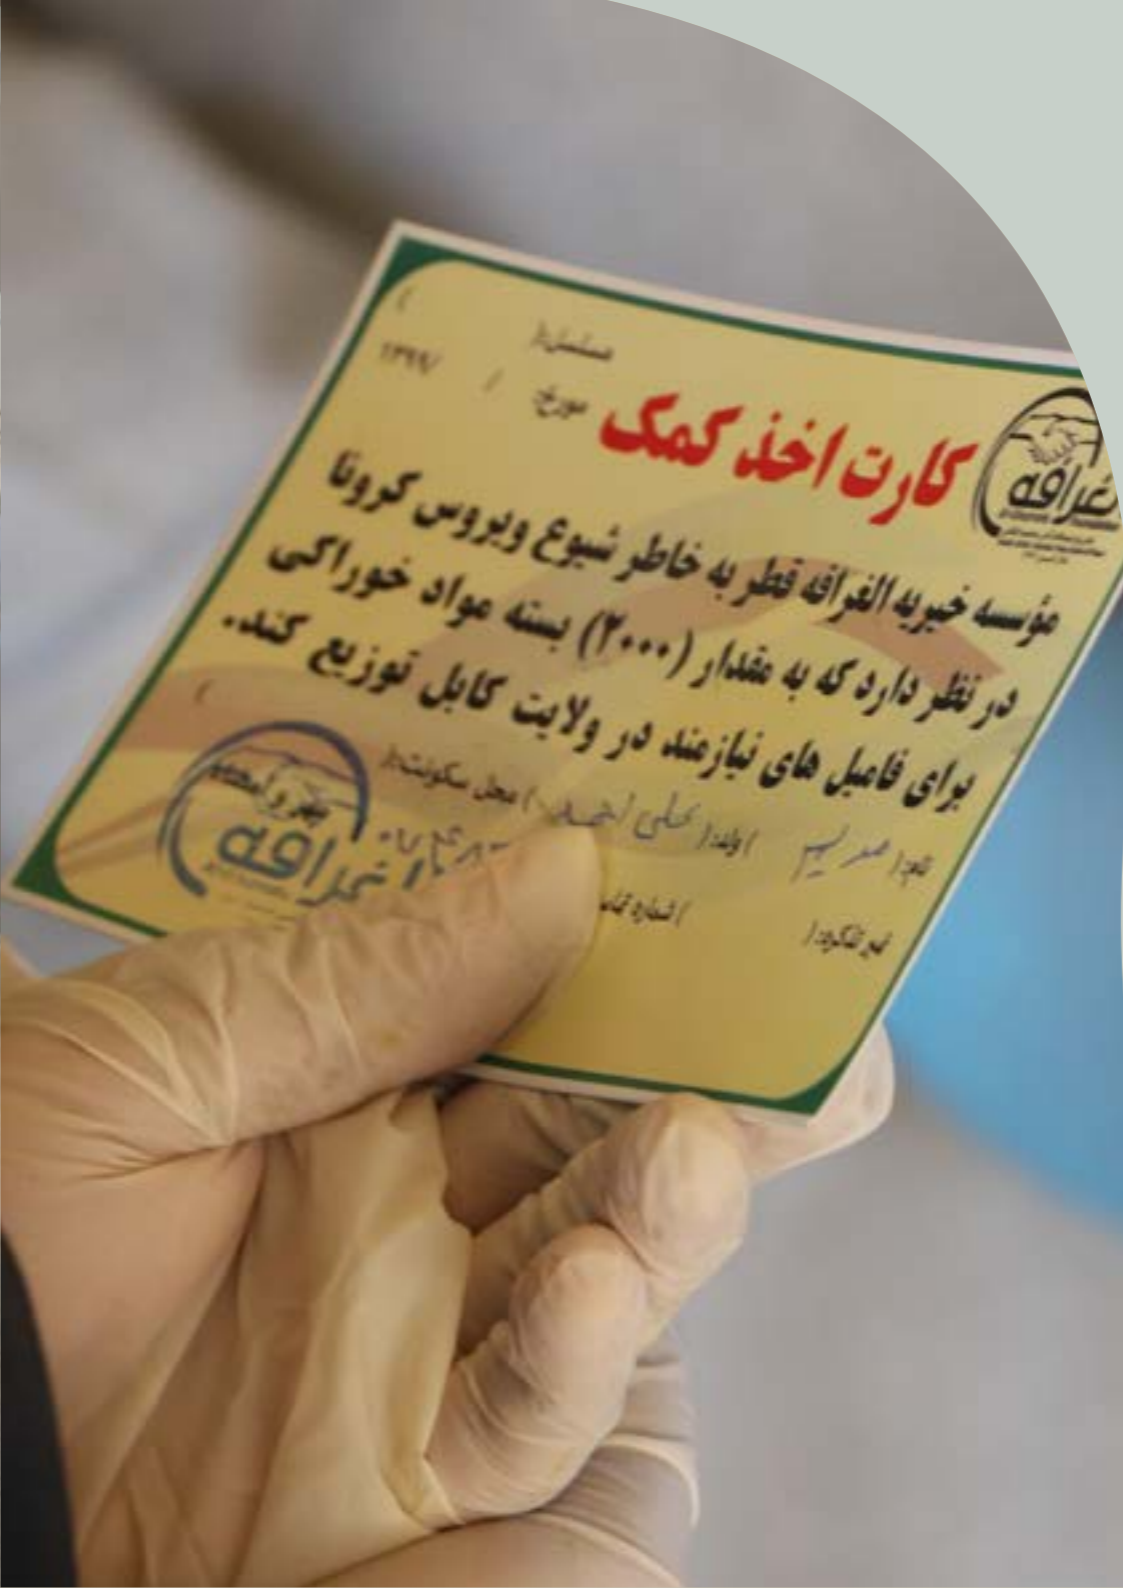 مسلسل:( )
مورخ: / /۱۳۹۹
کارت اخذ کمک
غرافه
مؤسسه خیریه الغرافه قطر به خاطر شیوع ویروس کرونا
در نظر دارد که به مقدار (۲۰۰۰) بسته مواد خوراکی
برای فامیل های نیازمند در ولایت کابل توزیع کند.
نام:( ) ولد:( علی احمد ) محل سکونت:( )
نمبر تذکره:( ) شماره
غرافه